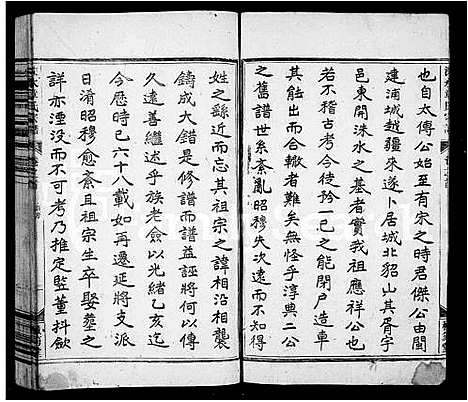 也自太傅公始至有宋之時君傑公由閩
建浦城越疆來遂卜居城北貂山其胥宇
邑東開洙水之基者實我祖應祥公也
若不稽古考今徒矜一己之能閉戶造車
其能合轍者難矣無怪乎淳典二公
之舊譜世系紊亂昭穆失次遠而不知得
姓之繇近而忘其祖宗之諱相沿相襲
鑄成大錯是修譜而譜益誣將何以傳
久遠善繼述乎族老僉以光緒乙亥迄
今歷時已六十八載如再遷延將支派
日淆昭穆愈紊且祖宗生卒娶塟之
詳亦湮沒而不可考乃推定監董抖歛